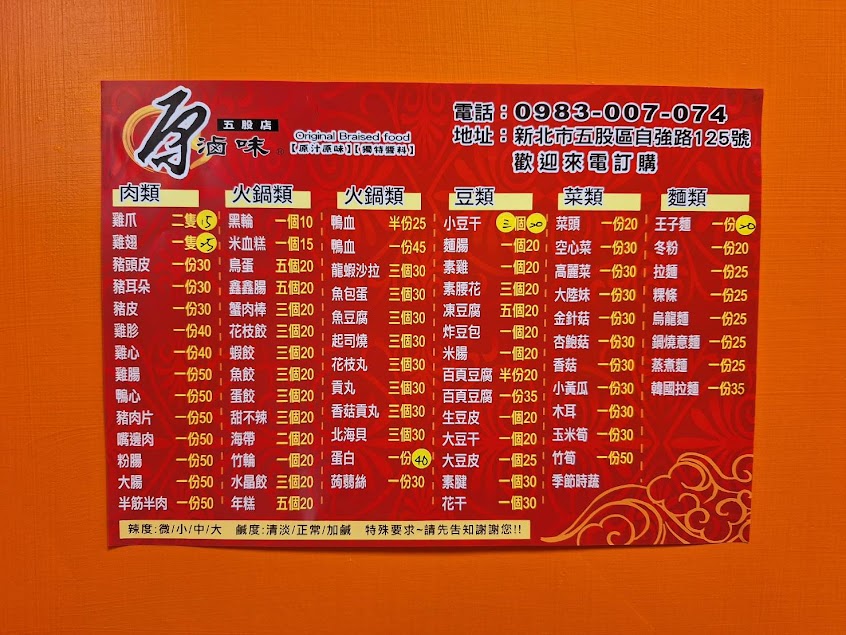 原
五股店
滷味
Original Braised food
【原汁原味】【獨特醬料】
電話：0983-007-074
地址：新北市五股區自強路125號
歡迎來電訂購
肉類
雞爪 二隻15
雞翅 一隻25
豬頭皮 一份30
豬耳朵 一份30
豬皮 一份30
雞胗 一份40
雞心 一份40
雞腸 一份50
鴨心 一份50
豬肉片 一份50
嘴邊肉 一份50
粉腸 一份50
大腸 一份50
半筋半肉 一份50
火鍋類
黑輪 一個10
米血糕 一個15
鳥蛋 五個20
鑫鑫腸 五個20
蟹肉棒 三個20
花枝餃 三個20
蝦餃 三個20
魚餃 三個20
蛋餃 三個20
甜不辣 三個20
海帶 二個20
竹輪 一個20
水晶餃 三個20
年糕 五個20
火鍋類
鴨血 半份25
鴨血 一份45
龍蝦沙拉 三個30
魚包蛋 三個30
魚豆腐 三個30
起司燒 三個30
花枝丸 三個30
貢丸 三個30
香菇貢丸 三個30
北海貝 三個30
蛋白 一份40
蒟蒻絲 一份30
豆類
小豆干 三個20
麵腸 一個20
素雞 一個20
素腰花 三個20
凍豆腐 五個20
炸豆包 一個20
米腸 一個20
百頁豆腐 半份20
百頁豆腐 一份35
生豆皮 一個20
大豆干 一個20
大豆皮 一個25
素腱 一個30
花干 一個30
菜類
菜頭 一份20
空心菜 一份30
高麗菜 一份30
大陸妹 一份30
金針菇 一份30
杏鮑菇 一份30
香菇 一份30
小黃瓜 一份30
木耳 一份30
玉米筍 一份30
竹筍 一份50
季節時蔬
麵類
王子麵 一份20
冬粉 一份20
拉麵 一份25
粿條 一份25
烏龍麵 一份25
鍋燒意麵 一份25
蒸煮麵 一份25
韓國拉麵 一份35
辣度:微/小/中/大 鹹度:清淡/正常/加鹹 特殊要求~請先告知謝謝您!!